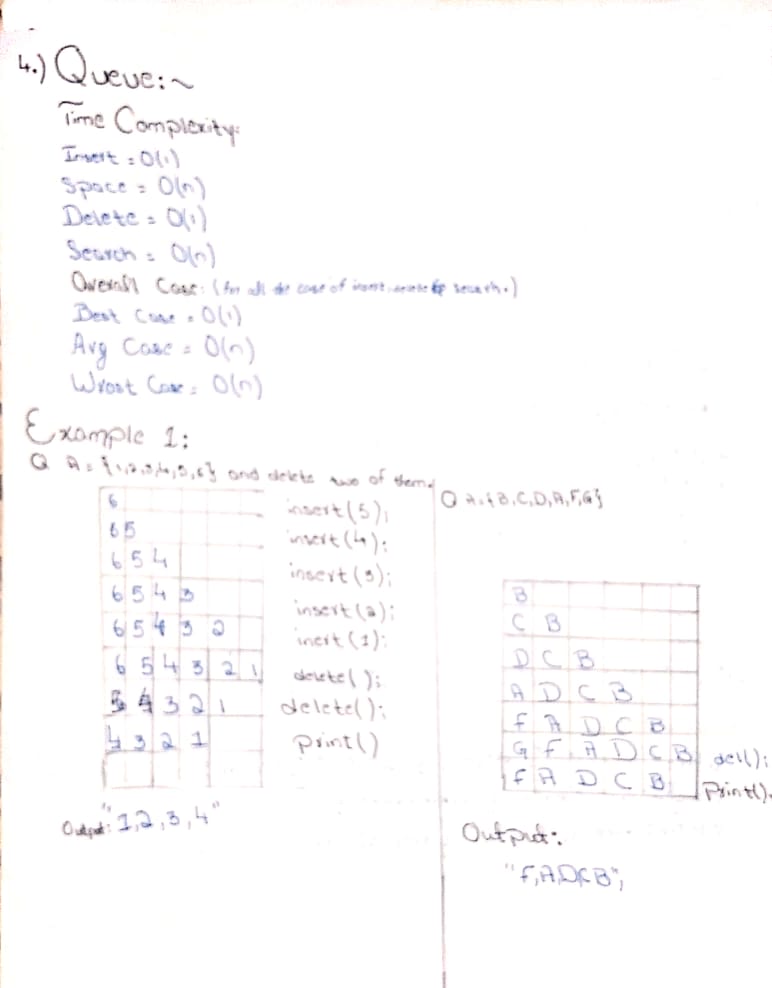 4.) Queue:~
Time Complexity:
Insert = O(1)
Space = O(n)
Delete = O(1)
Search = O(n)
Overall Case: (for all the case of insert, delete & search.)
Best Case = O(1)
Avg Case = O(n)
Wrost Case = O(n)
Example 1:
Q A = {1,2,3,4,5,6} and delete two of them.
6
6 5 insert(5);
6 5 4 insert(4);
6 5 4 3 insert(3);
6 5 4 3 2 insert(2);
6 5 4 3 2 1 inert(1);
5 4 3 2 1 delete();
4 3 2 1 delete();
print()
Output: "1,2,3,4"
Q A = {B,C,D,A,F,G}
B
C B
D C B
A D C B
F A D C B
G F A D C B del();
F A D C B print().
Output:
"F,A,D,C,B",